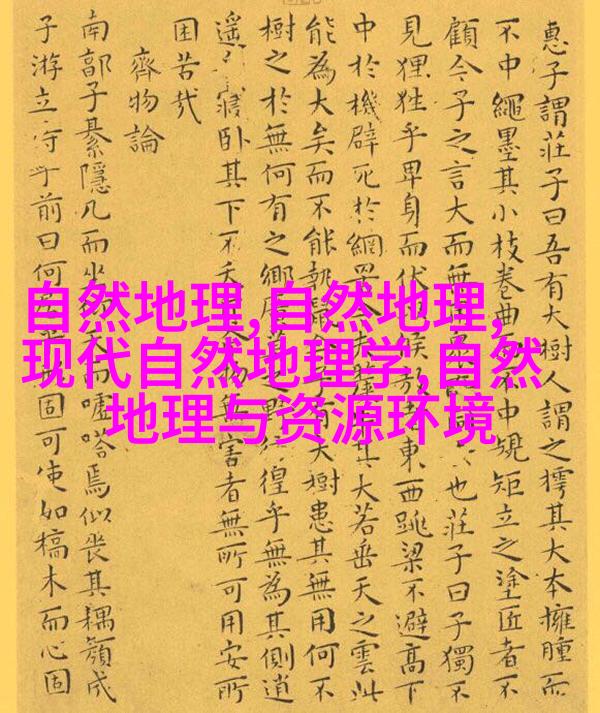 自然地理,自然地理,
现代自然地理学,自然
地理与资源环境
惠子謂莊子曰吾有大樹人謂之樗其大本擁腫而
不中繩墨其小枝卷曲而不中規矩立之塗匠者不
顧今子之言大而無也莊子曰子獨不
見狸狌乎卑身而伏候敖者東西跳梁不避高下
中於機辟死於網罟今其大若垂天之雲此
能為大矣而不能執鼠子有大樹患其無用何不
樹之於無何有之鄉之野徨乎無為其側逍
遙寢卧其下不夭物無害者無所可用安所
困苦哉
齊物論
南郭子綦隱几而坐天而噓嗒焉似喪其耦顏成
子游立侍乎前曰何固可使如槁木而心固